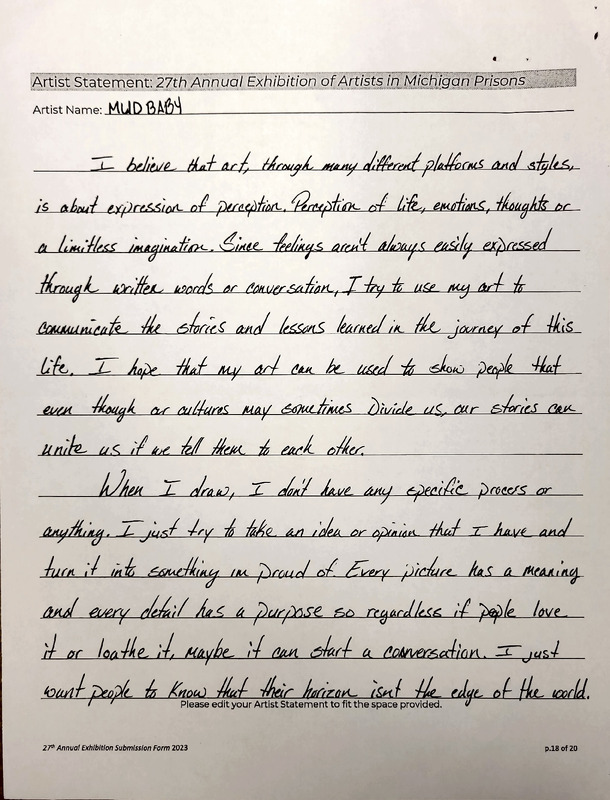 Artist Statement: 27th Annual Exhibition of Artists in Michigan Prisons
Artist Name: MUDBABY
I believe that art, through many different platforms and styles,
is about expression of perception. Perception of life, emotions, thoughts or
a limitless imagination. Since feelings aren't always easily expressed
through written words or conversation, I try to use my art to
communicate the stories and lessons learned in the journey of this
life. I hope that my art can be used to show people that
even though or cultures may sometimes Divide us, our stories can
unite us if we tell them to each other.
When I draw, I don't have any specific process or
anything. I just try to take an idea or opinion that I have and
turn it into something im proud of. Every picture has a meaning
and every detail has a purpose so regardless if people love
it or loathe it, maybe it can start a conversation. I just
want people to Know that their horizon isnt the edge of the world.
Please edit your Artist Statement to fit the space provided.
27th Annual Exhibition Submission Form 2023
p.18 of 20